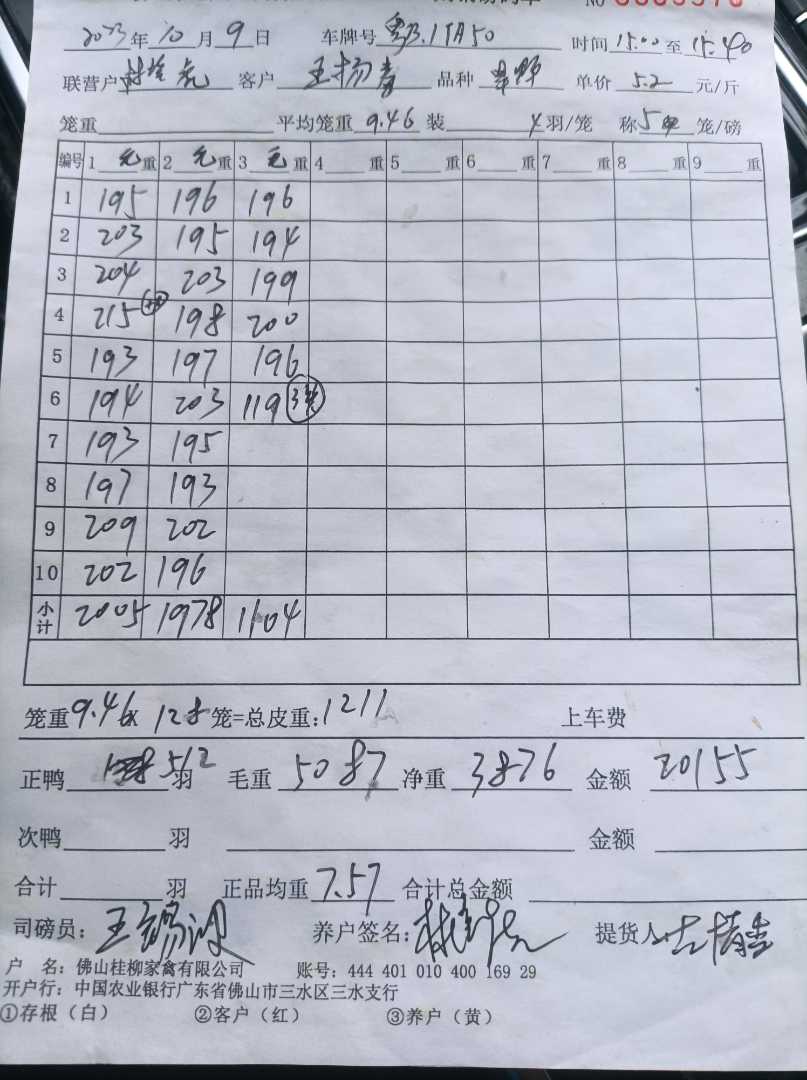 No 0003576
2023年10月9日 车牌号 粤 时间 15:00 至 15:40
联营户 客户 王扬 品种 单价 5.2 元/斤
笼重 平均笼重 9.46 装 4羽/笼 称 5 笼/磅
编号 1 毛重 2 毛重 3 毛重 4 重 5 重 6 重 7 重 8 重 9 重
1 195 196 196
2 203 195 194
3 204 203 199
4 215 198 200
5 193 197 196
6 194 203 119
7 193 195
8 197 193
9 209 202
10 202 196
小计 2005 1978 1104
笼重9.46x 128笼=总皮重:1211 上车费
正鸭 512 羽 毛重 5087 净重 3876 金额 20155
次鸭 羽 金额
合计 羽 正品均重 7.57 合计总金额
司磅员: 王 养户签名: 林 提货人:
户 名: 佛山桂柳家禽有限公司 账号: 444 401 010 400 169 29
开户行: 中国农业银行广东省佛山市三水区三水支行
①存根（白） ②客户（红） ③养户（黄）